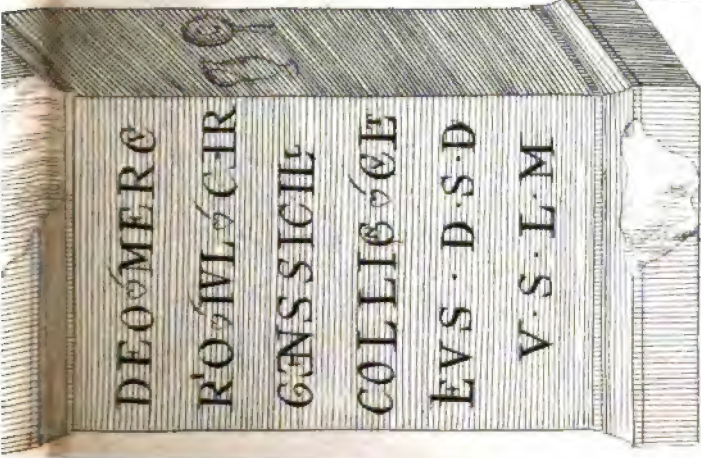 DEO MERC
RIO IVL CƎIR
GENSSICIL
COLLIG CET
EVS · D · S · D
V · S · L · M